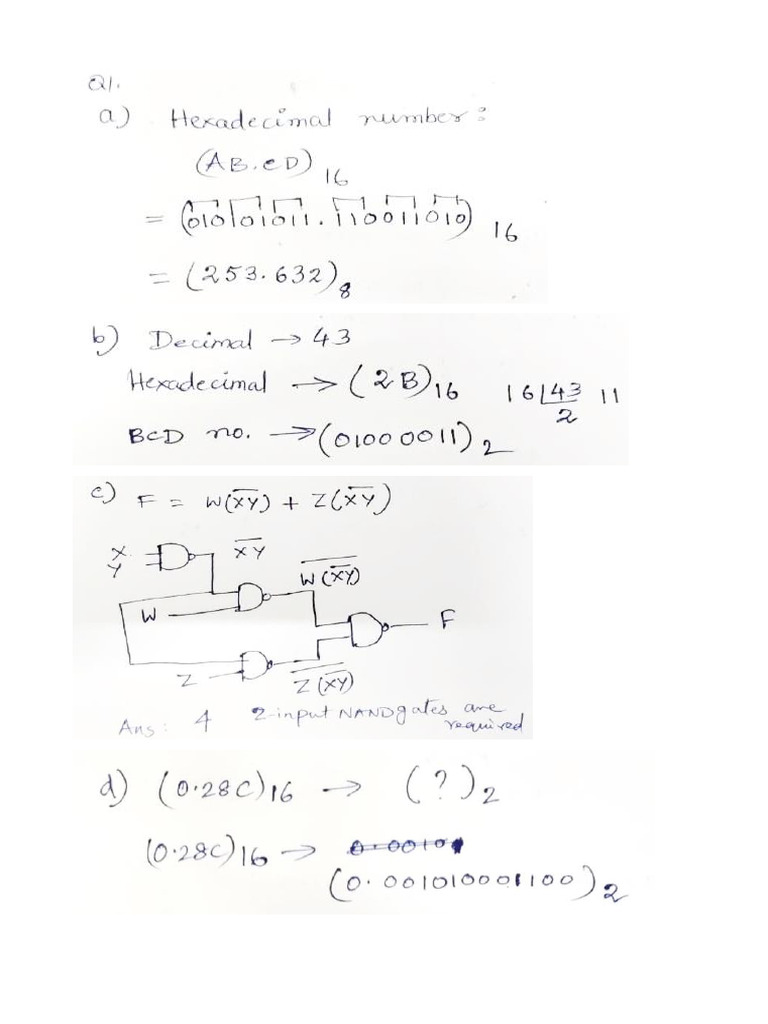 Q1.
a) Hexadecimal number:
(AB.CD)16
= (010101011.110011010)16
= (253.632)8
b) Decimal → 43
Hexadecimal → (2B)16 16 43 11
2
BCD no. → (01000011)2
c) F = W(X̅Y̅) + Z(X̅Y̅)
X
Y X̅Y̅ W(X̅Y̅)
W F
Z Z(X̅Y̅)
Ans: 4 2-input NAND gates are required
d) (0.28C)16 → (?)2
(0.28C)16 → 0.0010
(0.001010001100)2